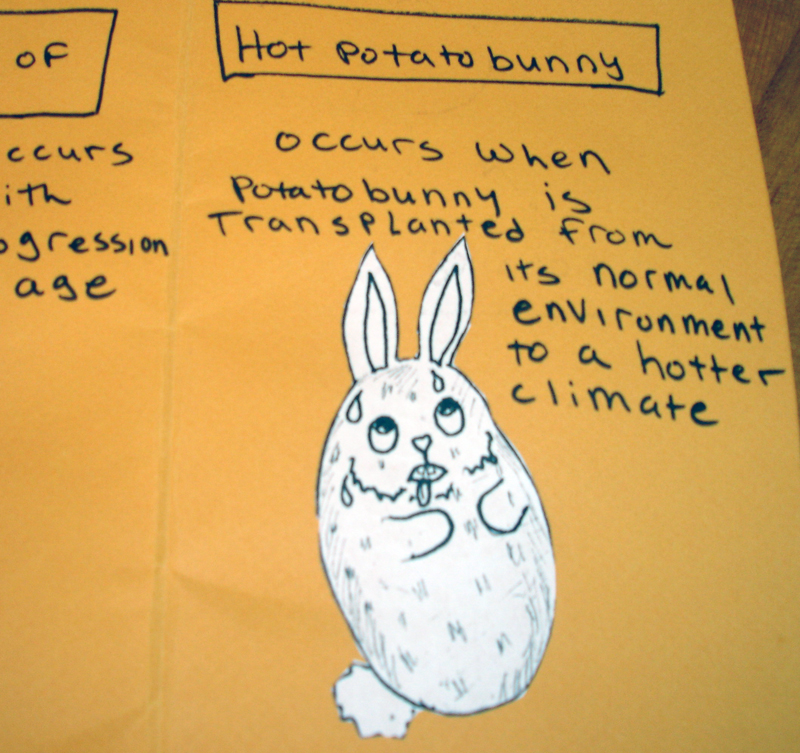 of
ccurs
ith
ogression
age
Hot potatobunny
occurs when
Potatobunny is
Transplanted from
its normal
environment
to a hotter
climate